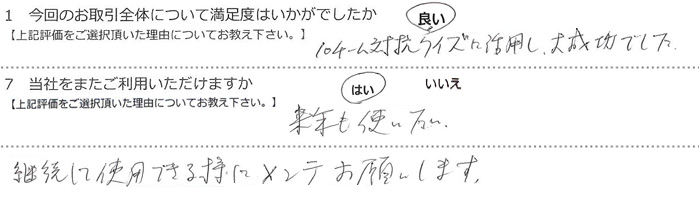 1 今回のお取引全体について満足度はいかがでしたか 良い
【上記評価をご選択頂いた理由についてお教え下さい。】
10チーム対抗クイズに活用し、大成功でした
7 当社をまたご利用いただけますか はい いいえ
【上記評価をご選択頂いた理由についてお教え下さい。】
来年も使いたい。
継続して使用できる様にメンテお願いします。